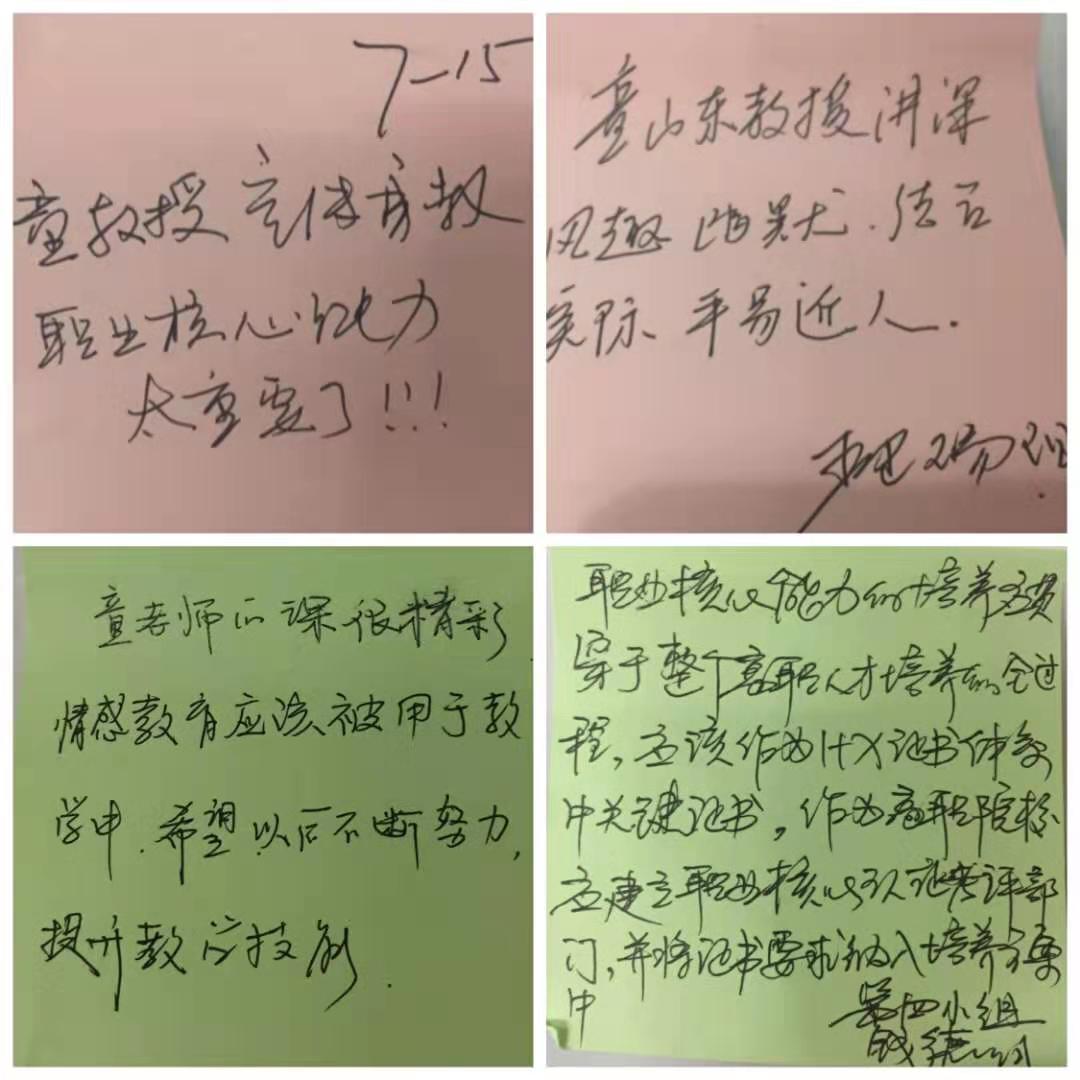 7-15
童教授言传身教
职业核心能力
太重要了!!!
童山东教授讲课
风趣幽默.结合
实际 平易近人.
童老师的课很精彩.
情感教育应该被用于教
学中.希望以后不断努力,
提升教学技能.
职业核心能力的培养要贯
穿于整个高职人才培养的全过
程,应该作为1+X证书体系
中关键证书,作为高职院校
应建立职业核心认证考评部
门,并将证书要求纳入培养方案
中
第四小组